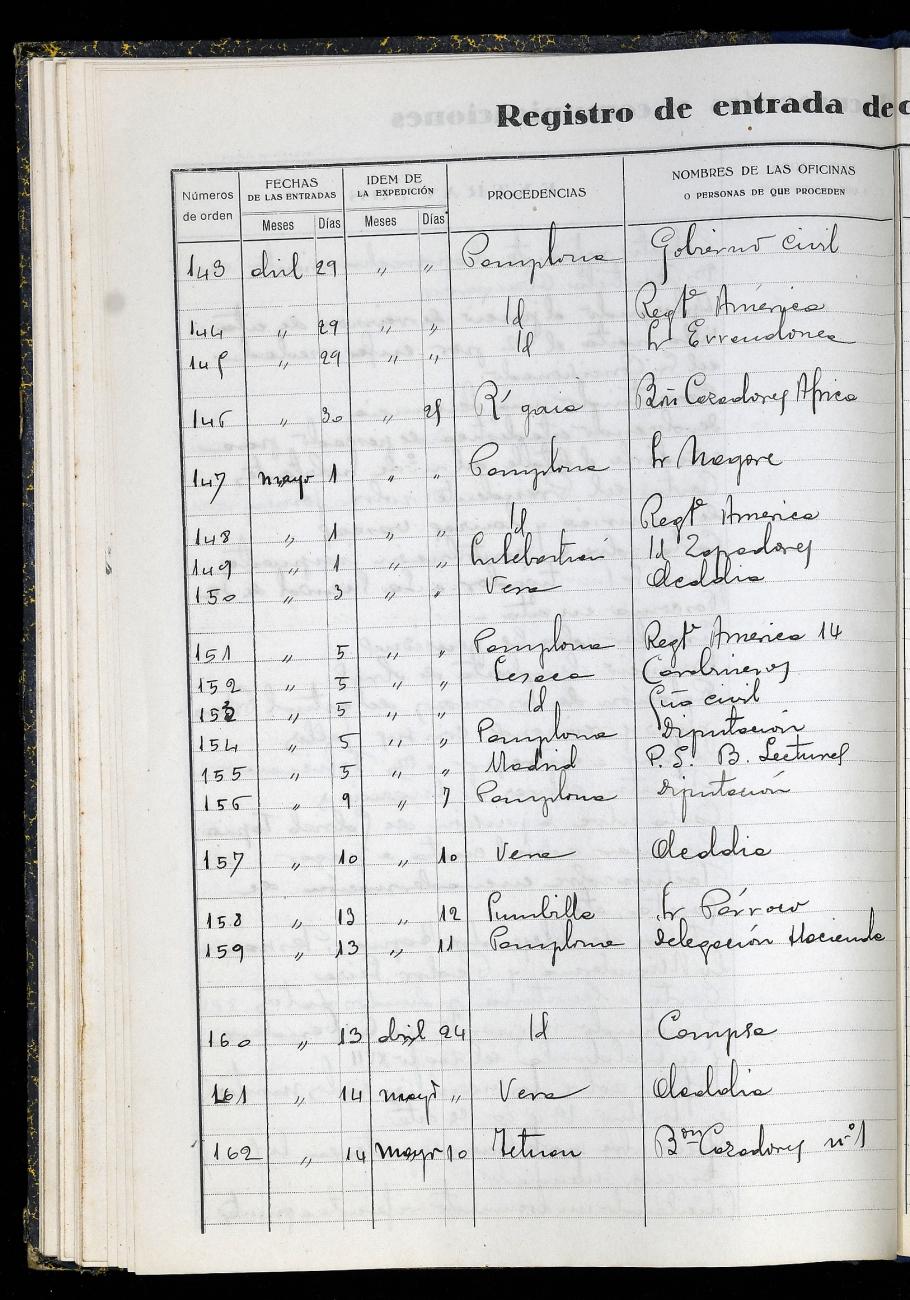 Registro de entrada de c
Números de orden
FECHAS DE LAS ENTRADAS
Meses Días
IDEM DE LA EXPEDICIÓN
Meses Días
PROCEDENCIAS
NOMBRES DE LAS OFICINAS
O PERSONAS DE QUE PROCEDEN
143 abril 29 〃 〃 Pamplona Gobierno civil
144 〃 29 〃 〃 Id Regtº América
145 〃 29 〃 〃 Id Sr Errandonea
146 〃 30 〃 25 R' gaia Bón Cazadores Africa
147 mayo 1 〃 〃 Pamplona Sr Nagore
148 〃 1 〃 〃 Id Regtº América
149 〃 1 〃 〃 Id Zapadores
150 〃 3 〃 〃 Vera Alcaldia
151 〃 5 〃 〃 Pamplona Regtº América 14
152 〃 5 〃 〃 Lesaca Carabineros
153 〃 5 〃 〃 Id Gia civil
154 〃 5 〃 〃 Pamplona Diputación
155 〃 5 〃 〃 Madrid P. S. B. Lectures
156 〃 9 〃 7 Pamplona Diputación
157 〃 10 〃 10 Vera Alcaldia
158 〃 13 〃 12 Sumbilla Sr Párroco
159 〃 13 〃 11 Pamplona Delegación Hacienda
160 〃 13 abril 24 Id Campsa
161 〃 14 mayo 〃 Vera Alcaldia
162 〃 14 mayo 10 Tetuan Bón Cazadores nº 1